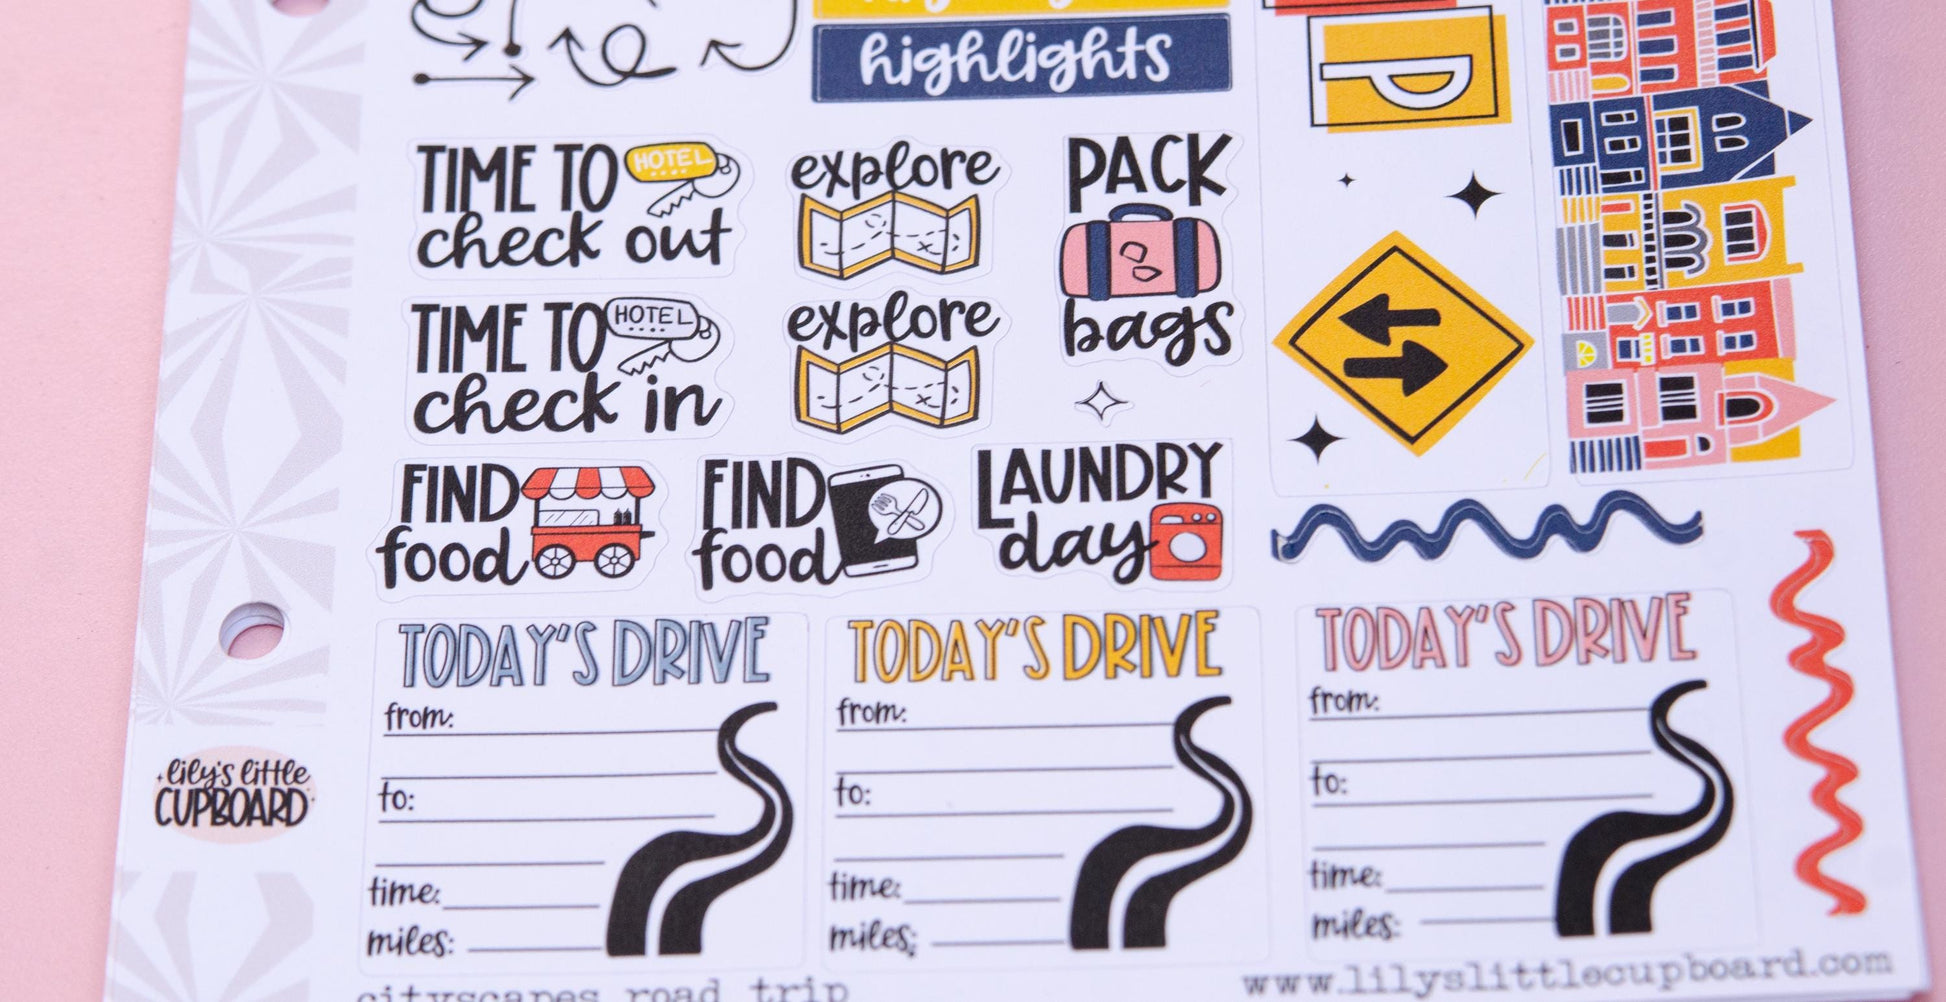 highlights
P
TIME TO
HOTEL
check out
explore
PACK
bags
TIME TO
HOTEL
check in
explore
FIND
food
FIND
food
LAUNDRY
day
TODAY'S DRIVE
from:
to:
time:
miles:
TODAY'S DRIVE
from:
to:
time:
miles:
TODAY'S DRIVE
from:
to:
time:
miles:
lily's little
CUPBOARD
cityscapes road trip
www.lilyslittlecupboard.com